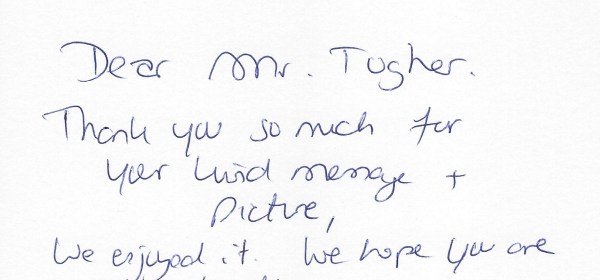 Dear Mr. Tugher.
Thank you so much for
your kind message +
Picture,
We enjoyed it. We hope you are